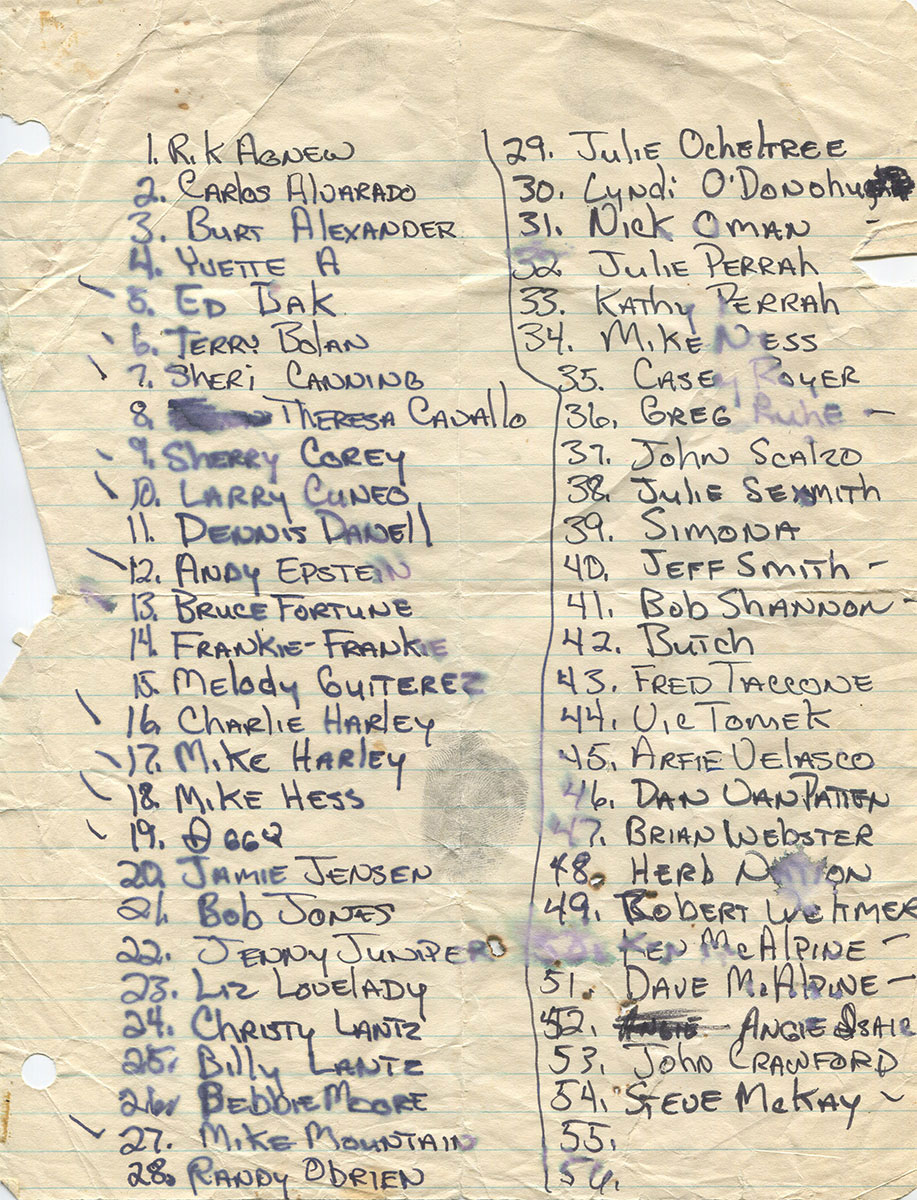 1. R.K AGNEW
2. CARLOS ALVARADO
3. BURT ALEXANDER
4. YVETTE A
5. ED BAK
6. TERRY BOLAN
7. SHERI CANNING
8. THERESA CAVALLO
9. SHERRY COREY
10. LARRY CUNEO
11. DENNIS DANELL
12. ANDY EPSTEIN
13. BRUCE FORTUNE
14. FRANKIE-FRANKIE
15. MELODY GUITEREZ
16. CHARLIE HARLEY
17. MIKE HARLEY
18. MIKE HESS
19.
20. JAMIE JENSEN
21. BOB JONES
22. JENNY JUNIPER
23. LIZ LOVELADY
24. CHRISTY LANTZ
25. BILLY LANTZ
26. DEBBIE MOORE
27. MIKE MOUNTAIN
28. RANDY OBRIEN
29. JULIE OCHELTREE
30. LYNDI O'DONOHU
31. NICK OMAN -
32. JULIE PERRAH
33. KATHY PERRAH
34. MIKE NESS
35. CASEY ROYER
36. GREG RUHE -
37. JOHN SCALZO
38. JULIE SEXMITH
39. SIMONA
40. JEFF SMITH -
41. BOB SHANNON -
42. BUTCH
43. FRED TACCONE
44. VIC TOMEK
45. ARFIE VELASCO
46. DAN VAN PATTEN
47. BRIAN WEBSTER
48. HERB
49. ROBERT
KEN McALPINE -
51. DAVE McALPINE -
52. ANGIE ANGIE
53. JOHN CRAWFORD
54. STEVE McKAY -
55.
56.